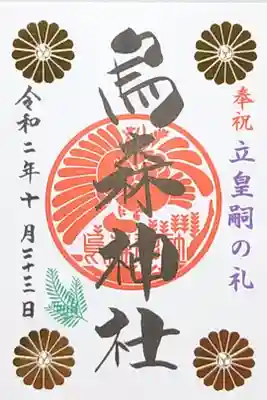 奉祝 立皇嗣の礼
烏森神社
令和二年十月二十三日